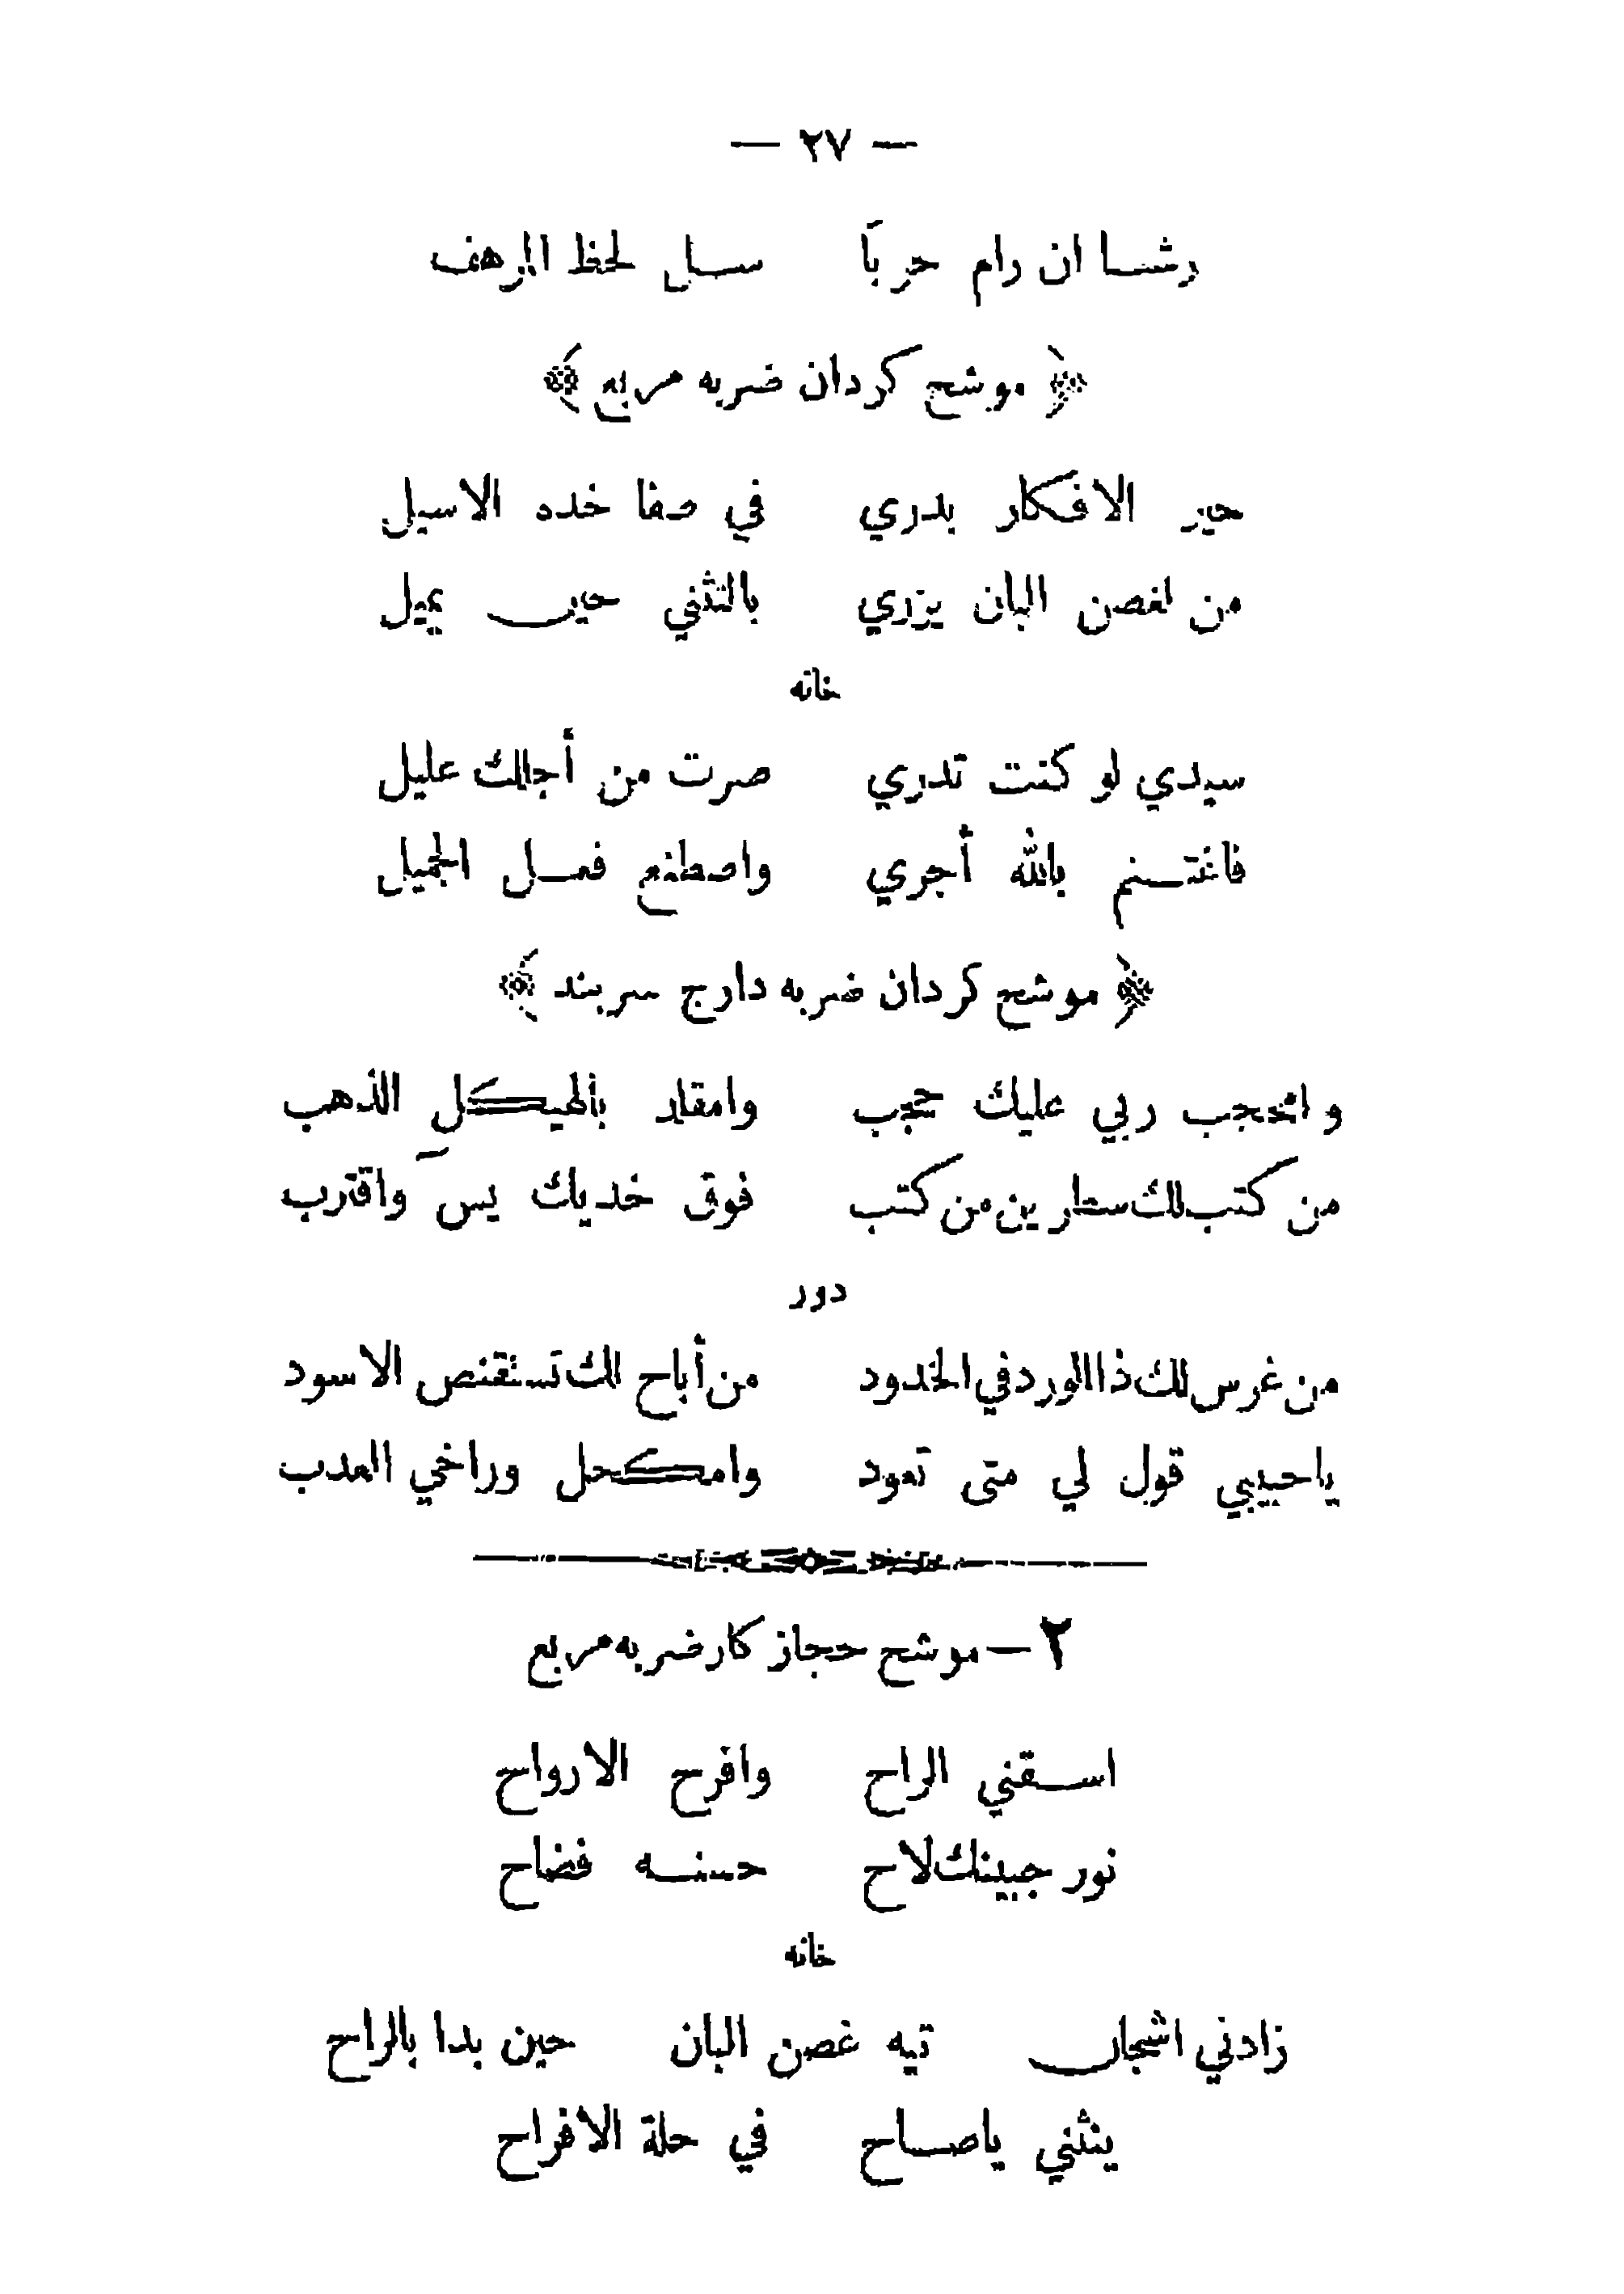 — ٢٧ —
رشا ان رام حرباً سل لحظ المرهف
﴿ موشح كردان ضربه مربع ﴾
حير الافكار بدري في صفا خده الاسيل
من لغصن البان يزري بالتثني حين يميل
خانه
سيدي لو كنت تدري صرت من أجلك عليل
فاغتنم بالله أجري واصطنع فعل الجميل
﴿ موشح كردان ضربه دارج سربند ﴾
و امحجب ربي عليك حجب وامقلد بالهيكل الذهب
من كتب لك سطارين من كتب فوق خديك يس واقترب
دور
من غرس لك ذا الورد في الخدود من أباح لك تستقنص الاسود
ياحبيبي قول لي متى تعود وامكحل وراخي العدب
٢ — موشح حجاز كار ضربه مربع
اسقني الراح وافرح الارواح
نور جبينك لاح حسنه فضاح
خانه
زادني اشجان تيه غصن البان حين بدا بالراح
ينثني ياصاح في حلة الافراح